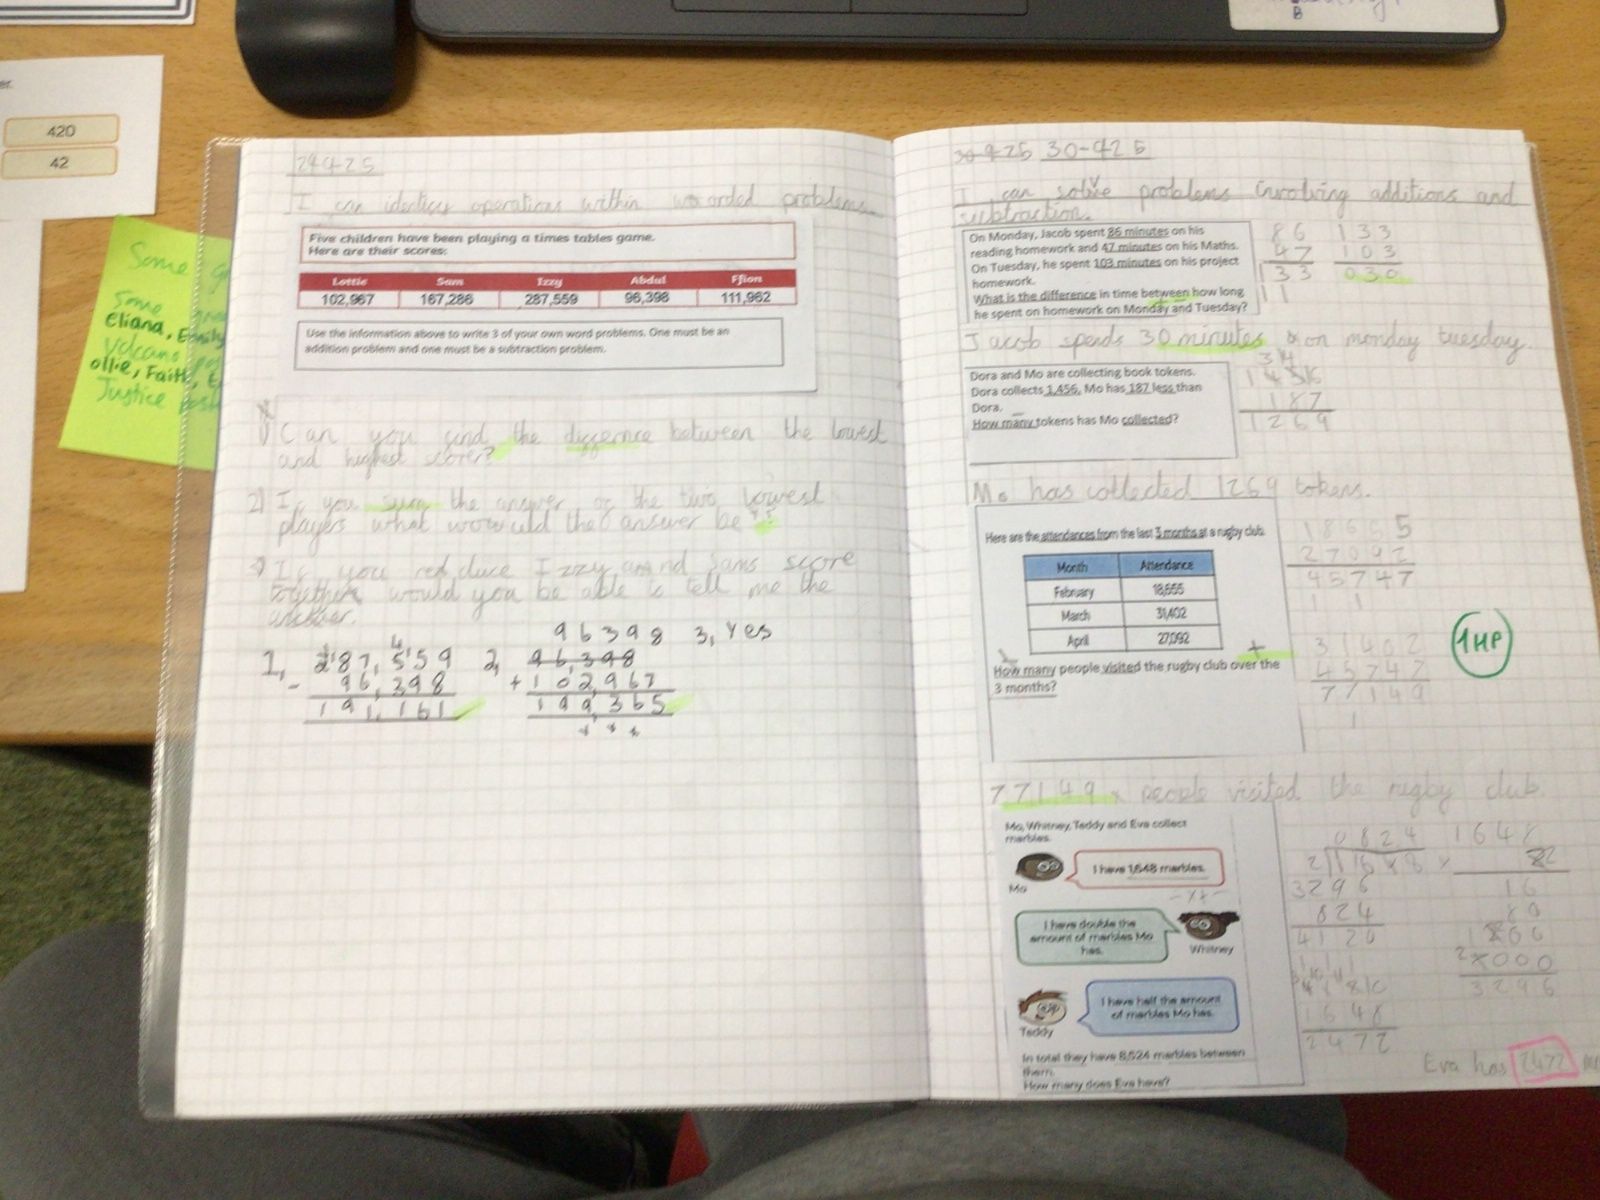 420
42
Some
Some
eliana, Emily
volcano
ollie, Faith, E
Justice post
29425
I can identicy operations within woorded problems.
Five children have been playing a times tables game.
Here are their scores:
Lottie Sam Izzy Abdul Ffion
102,967 167,286 287,559 96,398 111,962
Use the information above to write 3 of your own word problems. One must be an
addition problem and one must be a subtraction problem.
1) Can you find the differnce between the lowest
and highest scorer?
2) If you sum the answer of the two lowest
players what woould the answer be ??
3) If you reduce Izzy and Sams score
together would you be able to tell me the
answer.
1, 287,559
- 96,398
191,161
2, 96398
96,398
+ 102967
199,365
3, Yes
30-425 30-425
I can solve problems involving additions and
subtraction.
On Monday, Jacob spent 86 minutes on his
reading homework and 47 minutes on his Maths.
On Tuesday, he spent 103 minutes on his project
homework.
What is the difference in time between how long
he spent on homework on Monday and Tuesday?
86
47
133
11
133
103
030
Jacob spends 30 minutes on monday tuesday.
Dora and Mo are collecting book tokens.
Dora collects 1,456, Mo has 187 less than
Dora.
How many tokens has Mo collected?
187
1269
Mo has collected 1269 tokens.
Here are the attendances from the last 3 months at a rugby club.
Month Attendance
February 18,655
March 31,402
April 27,092
How many people visited the rugby club over the
3 months?
18655
27092
45747
1 1
+
31402
45747
77149
1
1HP
77149 people visited the rugby club.
Mo, Whitney, Teddy and Eva collect
marbles.
I have 1,648 marbles.
Mo
I have double the
amount of marbles Mo
has.
Whitney
I have half the amount
of marbles Mo has.
Teddy
In total they have 8,524 marbles between
them.
How many does Eva have?
0824
3296
824
4120
111
1648
2472
1648
16
80
3296
Eva has 2472